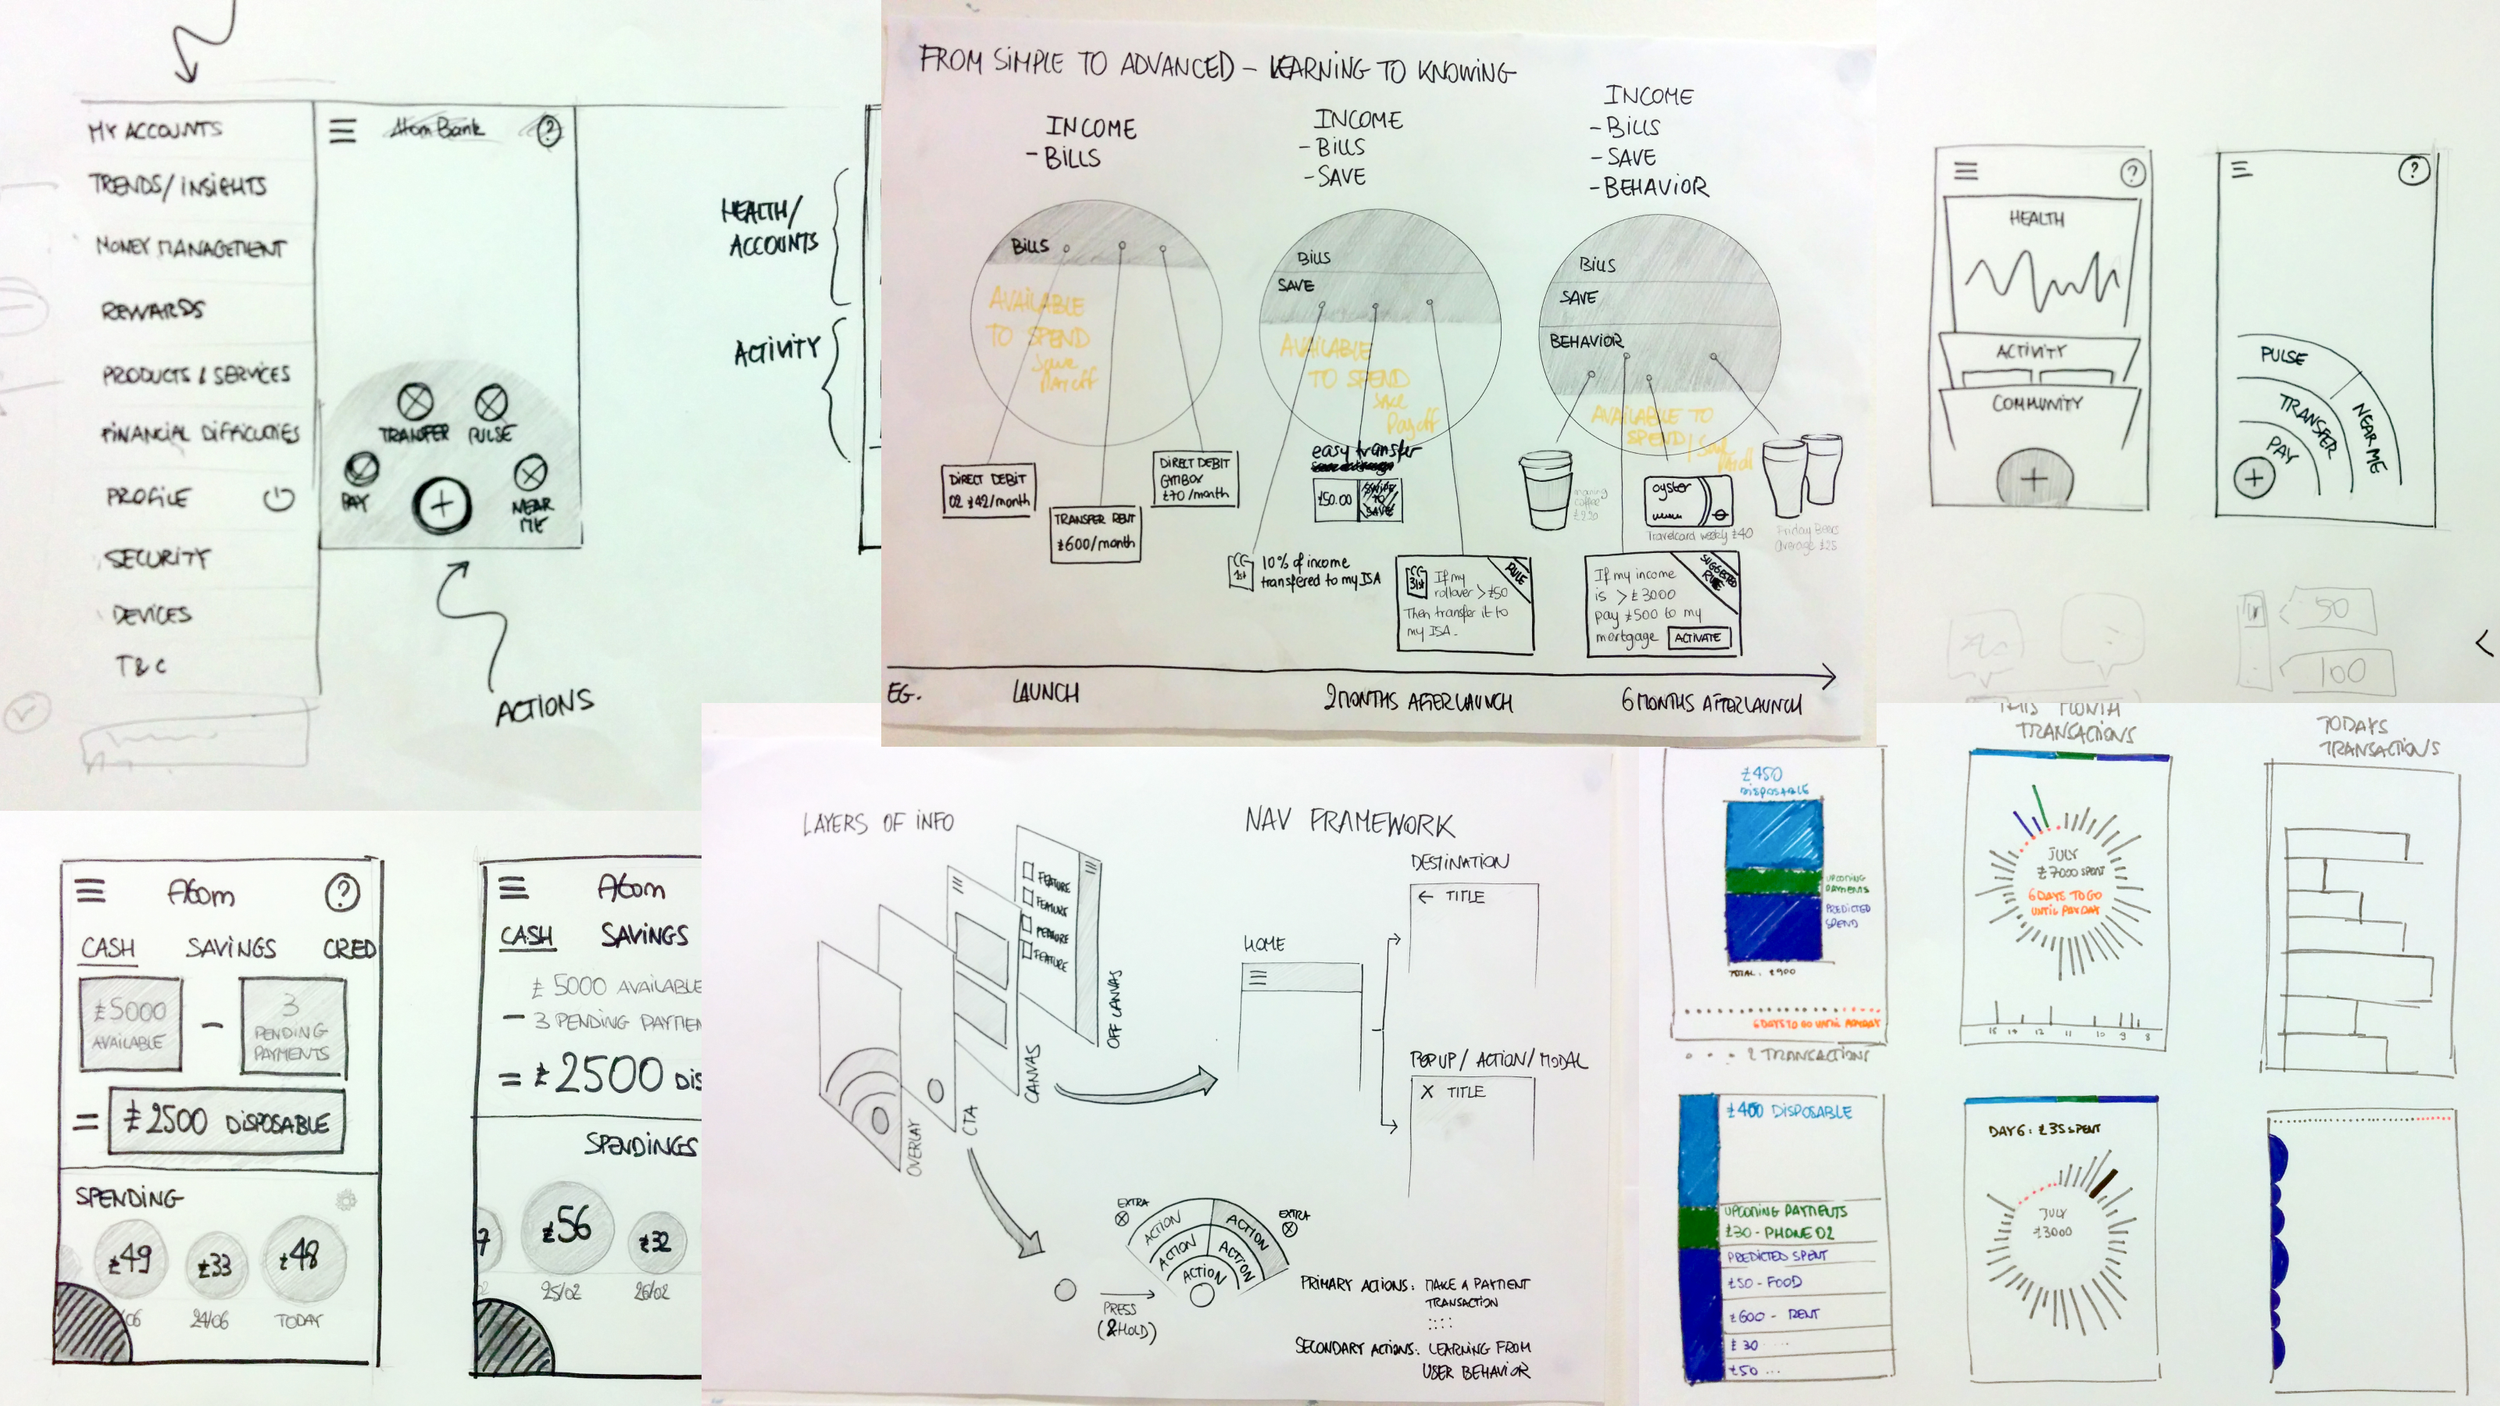 MY ACCOUNTS
TRENDS/INSIGHTS
MONEY MANAGEMENT
REWARDS
PRODUCTS & SERVICES
FINANCIAL DIFFICULTIES
PROFILE
SECURITY
DEVICES
T&C
Atom Bank
?
TRANSFER
PULSE
PAY
+
NEAR
ME
ACTIONS
HEALTH/
ACCOUNTS
ACTIVITY
FROM SIMPLE TO ADVANCED - LEARNING TO KNOWING
INCOME
- BILLS
INCOME
- BILLS
- SAVE
INCOME
- BILLS
- SAVE
- BEHAVIOR
BILLS
AVAILABLE
TO SPEND
Save
Pay off
BILLS
SAVE
AVAILABLE
TO SPEND
Save
Pay off
BILLS
SAVE
BEHAVIOR
AVAILABLE TO
SPEND/
DIRECT DEBIT
O2 £42/month
TRANSFER RENT
£600/month
DIRECT DEBIT
GYMBOX
£70/month
easy transfer
£50.00
SWIPE
TO
SAVE
1st
10% of income
transfered to my ISA
31st
If my
rollover >£50
Then transfer it to
my ISA.
RULE
morning
coffee
oyster
Travelcard weekly £40
Friday Beers
Average £25
If my income
is > £3000
pay £500 to my
mortgage
ACTIVATE
SUGGESTED
RULE
EG.
LAUNCH
2 MONTHS AFTER LAUNCH
6 MONTHS AFTER LAUNCH
?
HEALTH
ACTIVITY
COMMUNITY
+
?
PULSE
NEAR ME
TRANSFER
PAY
+
50
100
<
Atom
?
CASH
SAVINGS
CRED
£5000
AVAILABLE
-
3
PENDING
PAYMENTS
=
£2500 DISPOSABLE
SPENDING
£49
£33
£48
/06
24/06
TODAY
Atom
CASH
SAVINGS
£5000 AVAILABLE
- 3 PENDING PAYMEN
= £2500 DIS
SPENDINGS
7
£56
£32
25/02
26/02
LAYERS OF INFO
FEATURE
FEATURE
FEATURE
FEATURE
OFF CANVAS
CANVAS
CTA
OVERLAY
NAV FRAMEWORK
DESTINATION
← TITLE
HOME
POPUP/ACTION/MODAL
X TITLE
PRESS
(& HOLD)
EXTRA
EXTRA
ACTION
ACTION
ACTION
ACTION
ACTION
PRIMARY ACTIONS: MAKE A PAYMENT
TRANSACTION
SECONDARY ACTIONS: LEARNING FROM
USER BEHAVIOR
£450
DISPOSABLE
UPCOMING
PAYMENTS
PREDICTED
SPEND
TOTAL: £900
6 DAYS TO GO UNTIL PAYDAY
2 TRANSACTIONS
THIS MONTH
TRANSACTIONS
JULY
£7000 SPENT
6 DAYS TO GO
UNTIL PAYDAY
15 14 12 11 10 9 8
TODAYS
TRANSACTIONS
£400 DISPOSABLE
UPCOMING PAYMENTS
£30 - PHONE O2
PREDICTED SPENT
£50 - FOOD
£600 - RENT
£30 ...
£50 ...
DAY 6: £35 SPENT
JULY
£3000